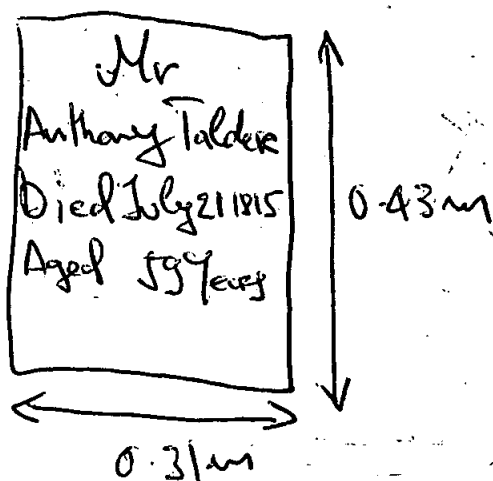 Mr
Anthony Taldere
Died July 21 1815
Aged 59 Years
0.43m
0.31m